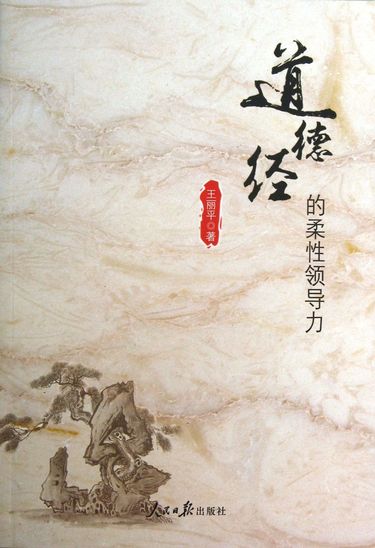 道德经
的柔性领导力
王丽平◎著
人民日报出版社